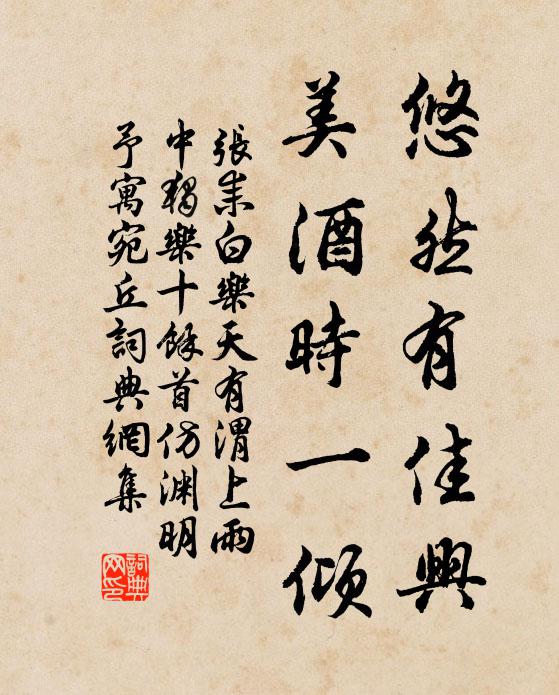 悠然有佳興
美酒時一傾
張耒白樂天有渭上雨
中獨樂十餘首仿淵明
予寓宛丘詞典網集
詞典
网印